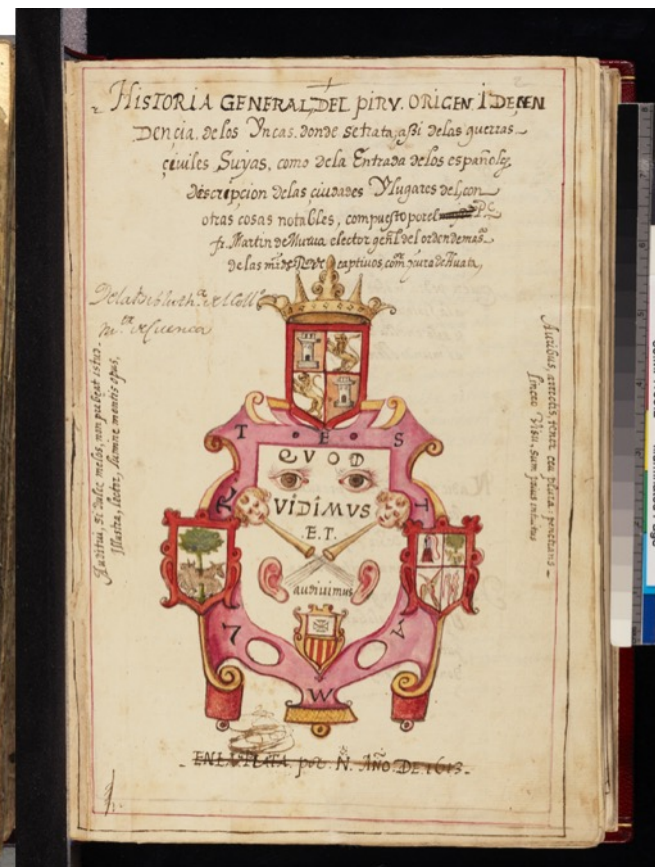 HISTORIA GENERAL, DEL PIRV. ORIGEN. I DECEN
DENCIA. de los Yncas. donde se trata, aßi delas guerras
çiuiles Suyas, como dela Entrada delos españoles
descripcion delas çiudades Y lugares del, con
otras cosas notables, compuesto por el P.
fr. Martin de Murua elector gen.l del orden de
de las captiuos, y cura de Huata,
De la Biblioth.a del Coll.o
de Cuenca
Auditui, si dulce melos, non prebeat istud
Illustra, lector, lumine mentis opus,
Auribus, arrectis, penetrans
linceo Visu, sum
T E S
QVOD
VIDIMVS
.E.T.
audiuimus
T
A
L
W
EN LA PLATA por N. AÑO. DE. 1613.